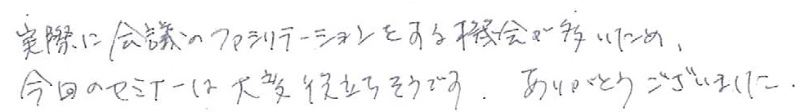 実際に会議のファシリテーションをする機会が多いため、
今回のセミナーは大変役立ちそうです. ありがとうございました.